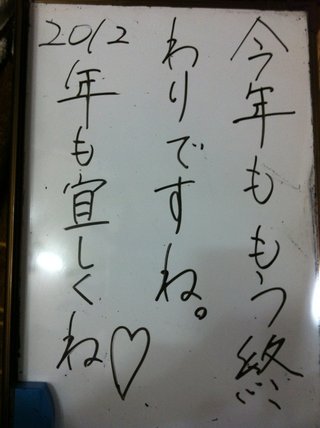 今年ももう終
わりですね。
2012年も宜しくね♡